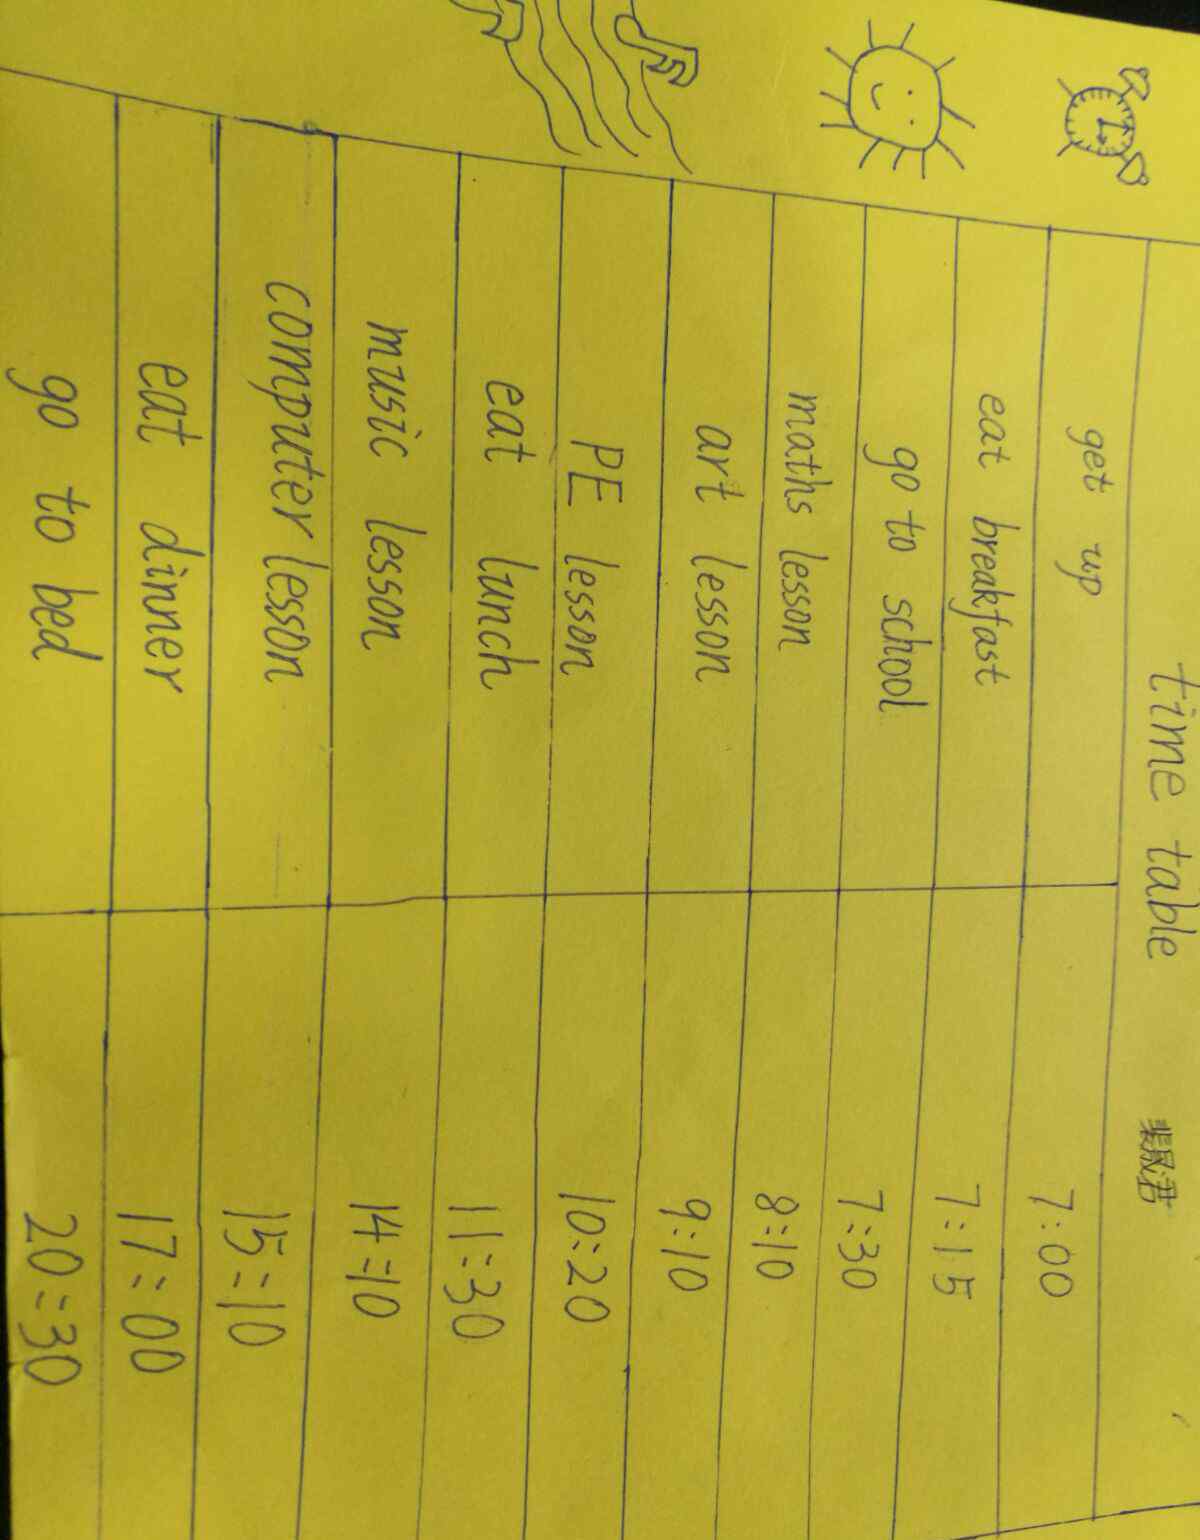 time table
get up 7:00
eat breakfast 7:15
go to school 7:30
maths lesson 8:10
art lesson 9:10
PE lesson 10:20
eat lunch 11:30
music lesson 14:10
computer lesson 15:10
eat dinner 17:00
go to bed 20:30